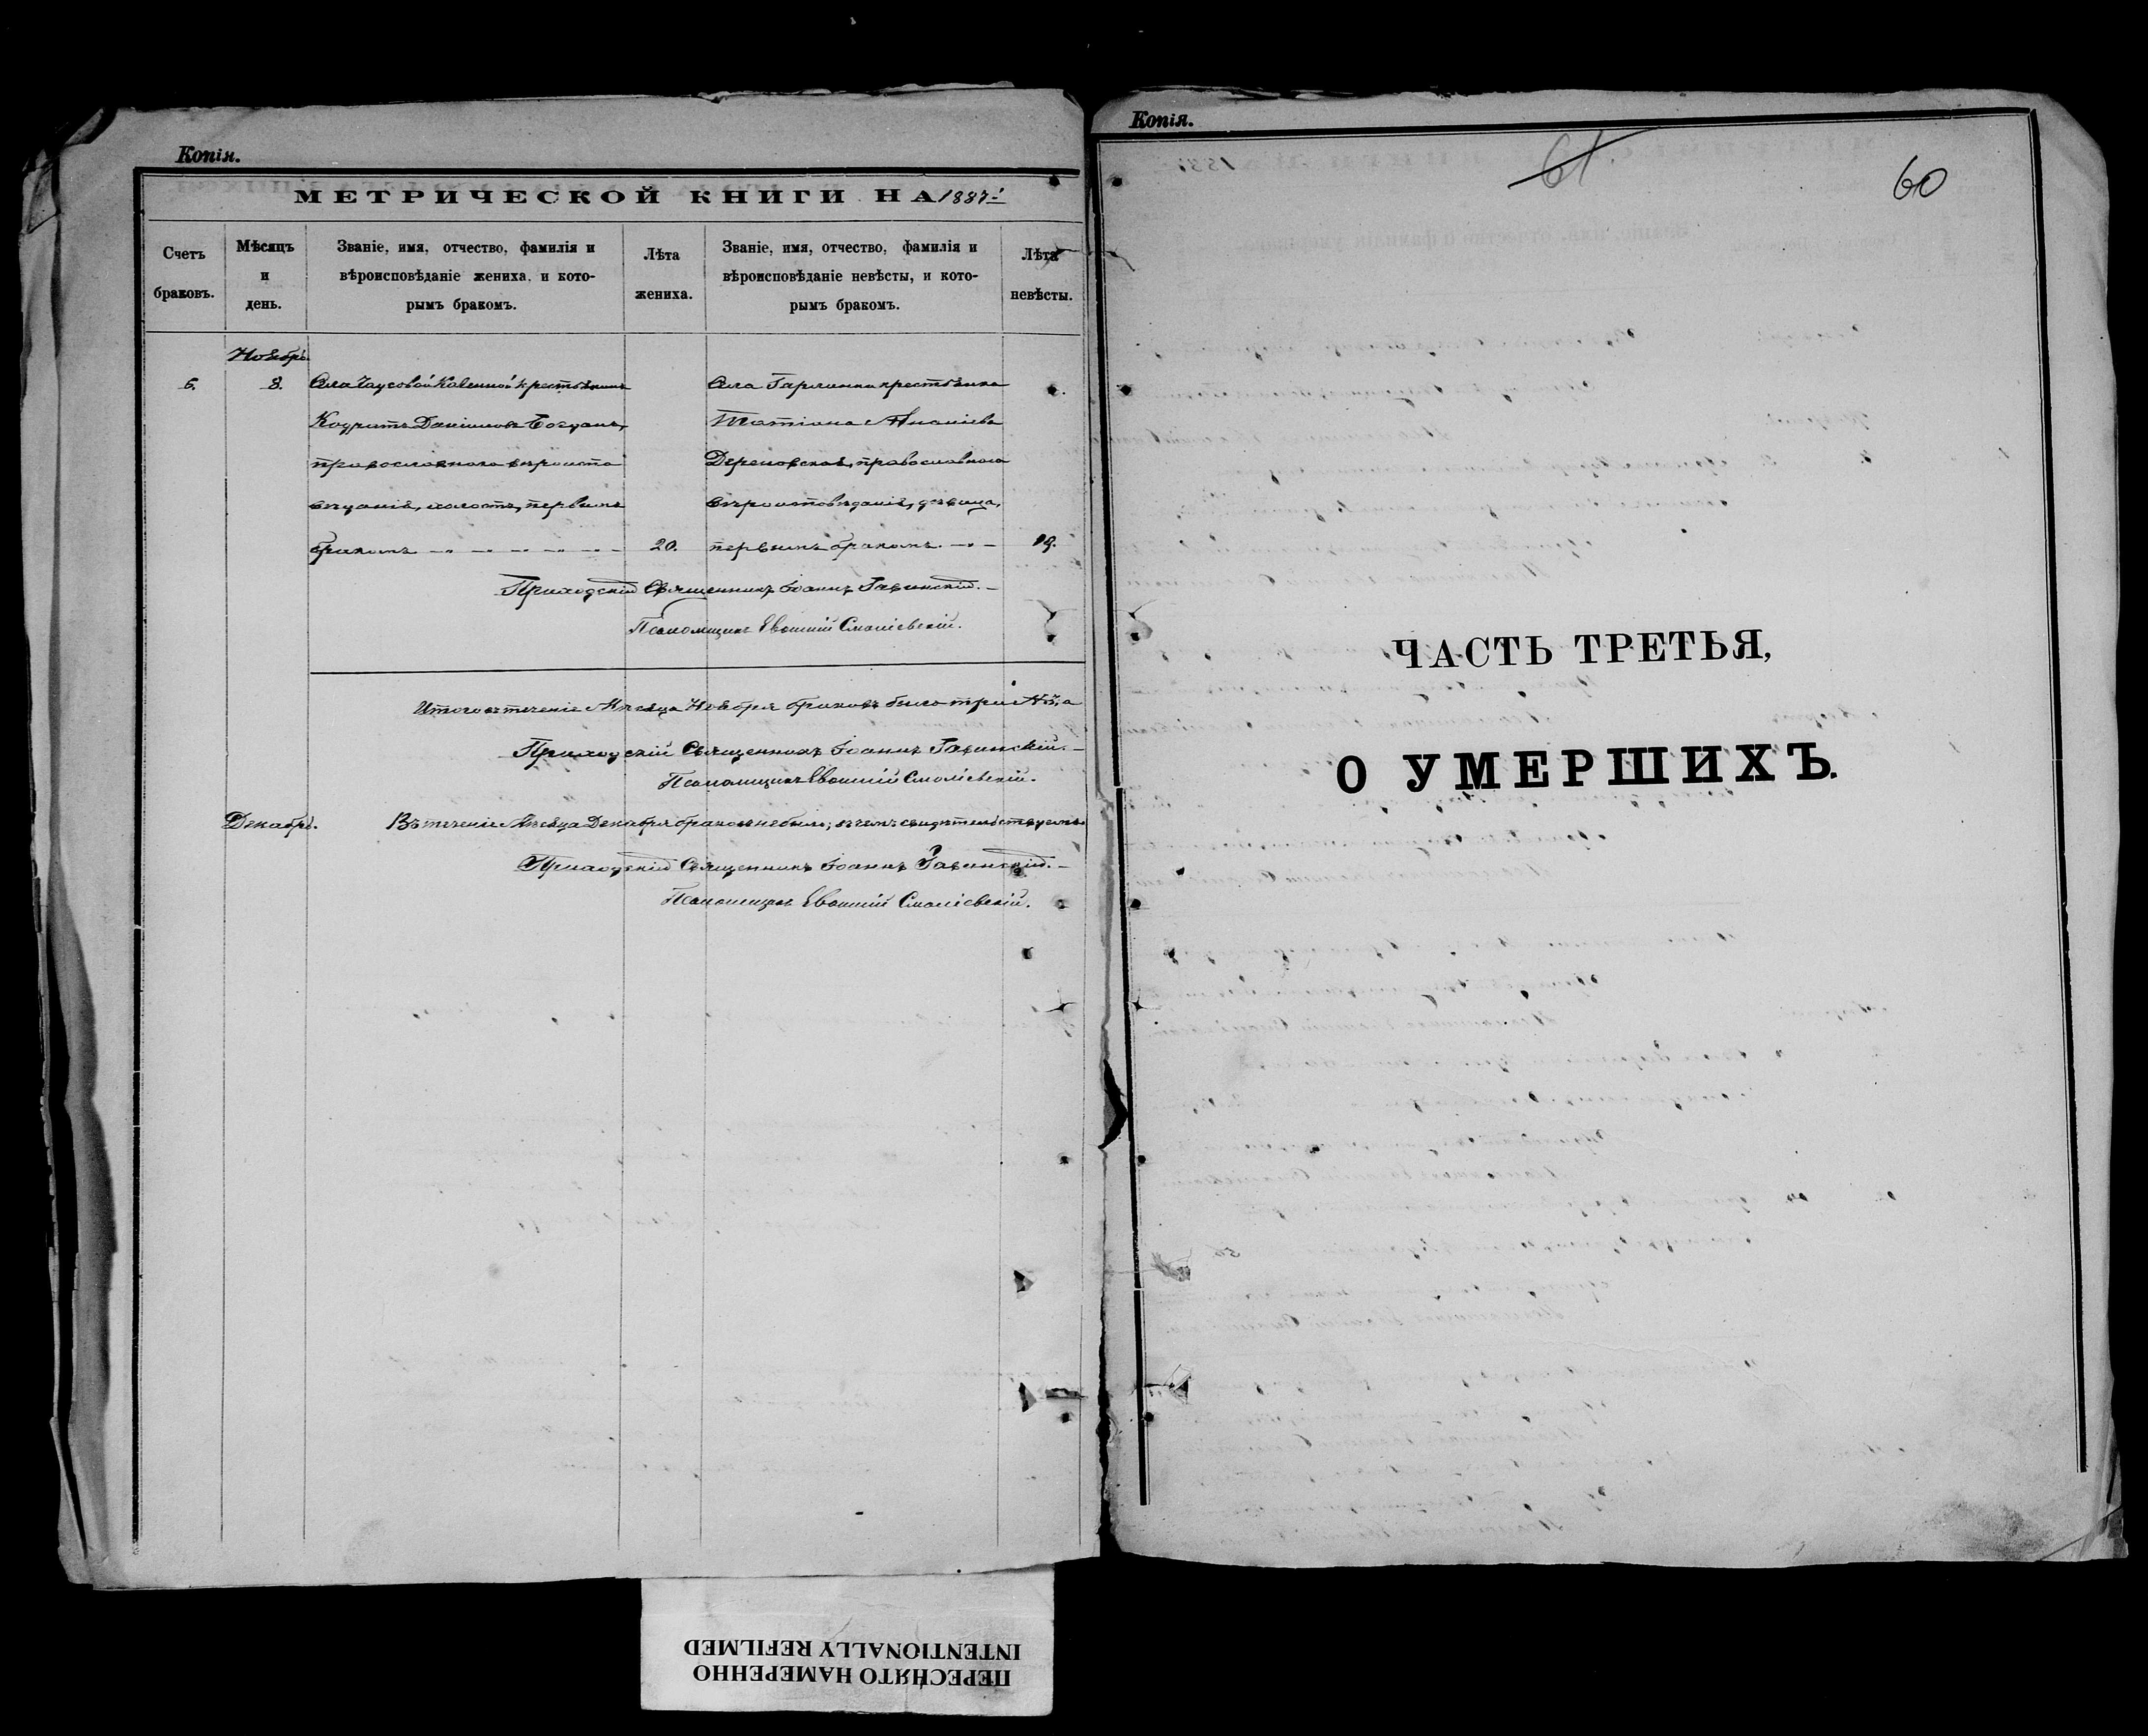 Копія.
МЕТРИЧЕСКОЙ КНИГИ НА 1887 г.
Счетъ браковъ.
Мѣсяцъ и день.
Званіе, имя, отчество, фамилія и
вѣроисповѣданіе жениха, и кото-
рымъ бракомъ.
Лѣта жениха.
Званіе, имя, отчество, фамилія и
вѣроисповѣданіе невѣсты, и кото-
рымъ бракомъ.
Лѣта невѣсты.
Ноябрь.
6. 8. Села Чаусовой Казенной крестьянинъ
Кодратъ Даніиловъ Богданъ,
православнаго вѣроиспо
вѣданія, холостъ, первымъ
бракомъ 20.
Села Гарлинки крестьянка
Татіана Ананіева
Дереновская, православного
вѣроисповѣданія, дѣвица,
первымъ бракомъ. 19.
Приходскій Священникъ Іоаннъ
Псаломщикъ Евѳимій
Итого въ теченіе Мѣсяца Ноября браковъ было три
Приходскій Священникъ Іоаннъ
Псаломщикъ Евѳимій
Декабрь. Въ теченіе Мѣсяца Декабря браковъ не было, въ чемъ свидѣтельствуемъ.
Приходскій Священникъ Іоаннъ
Псаломщикъ Евѳимій
Копія.
61
60
ЧАСТЬ ТРЕТЬЯ,
О УМЕРШИХЪ.
ПЕРЕСНЯТО НАМЕРЕННО
INTENTIONALLY REFILMED